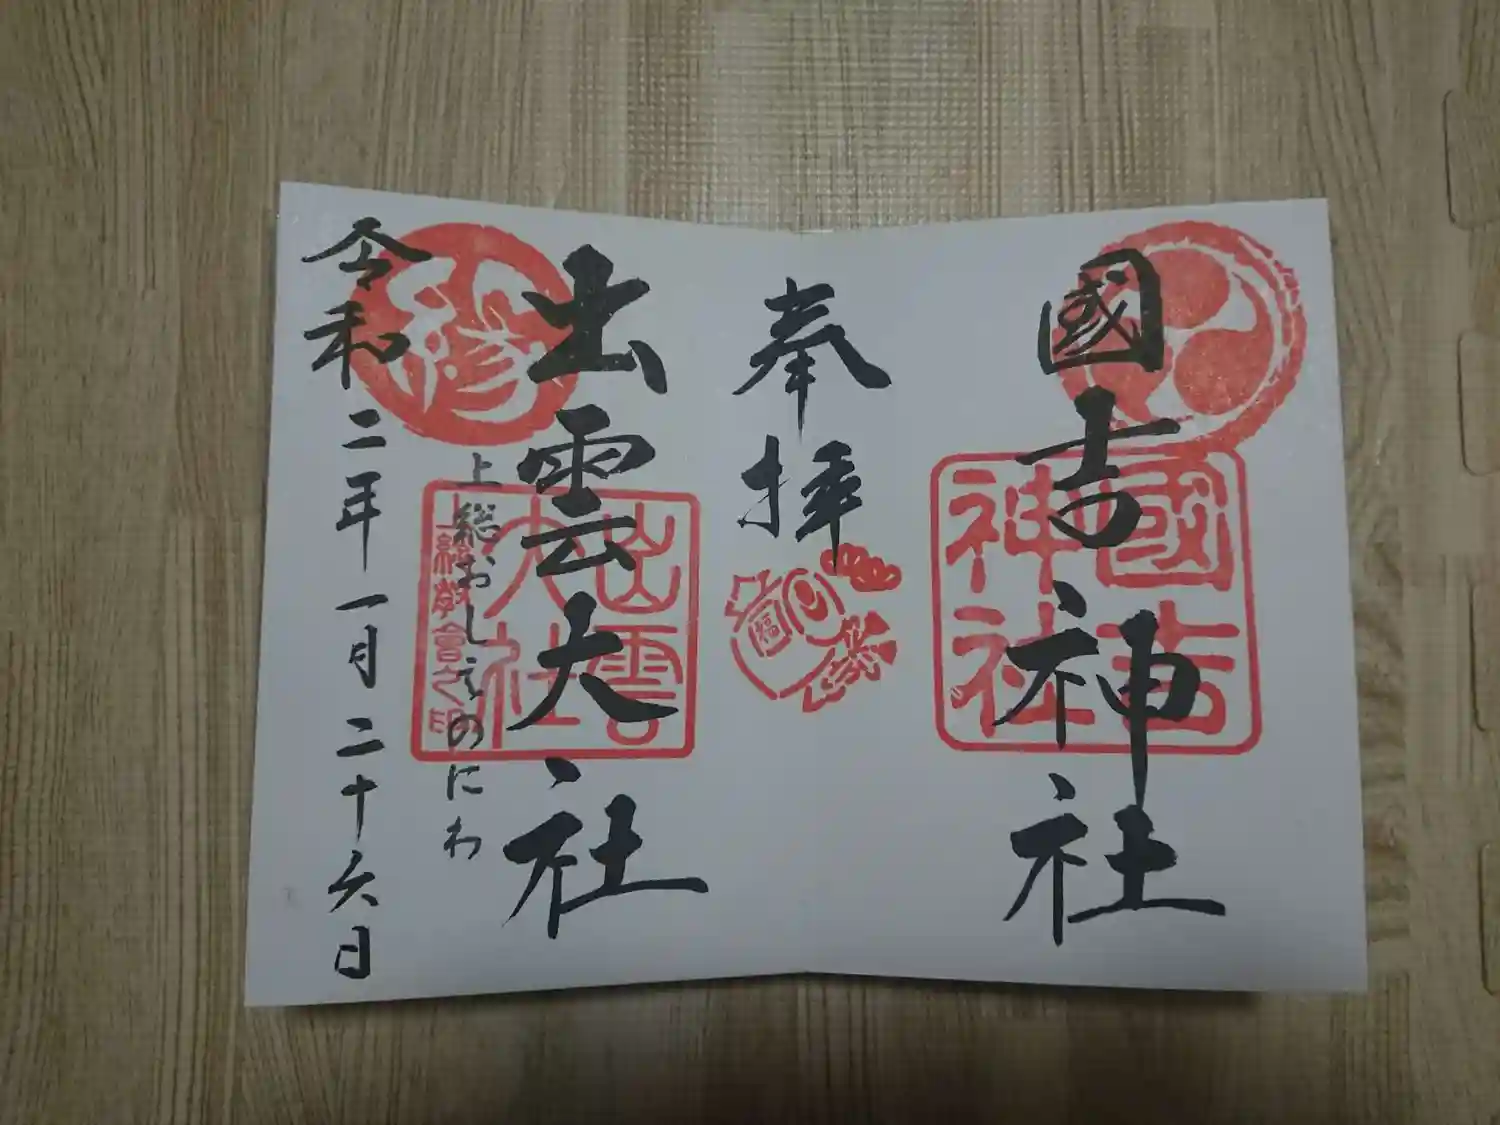 國吉神社
國吉
神社
奉拝
福
出雲大社
出雲
大社
上総教會之印
上総おしえのにわ
令和二年一月二十六日